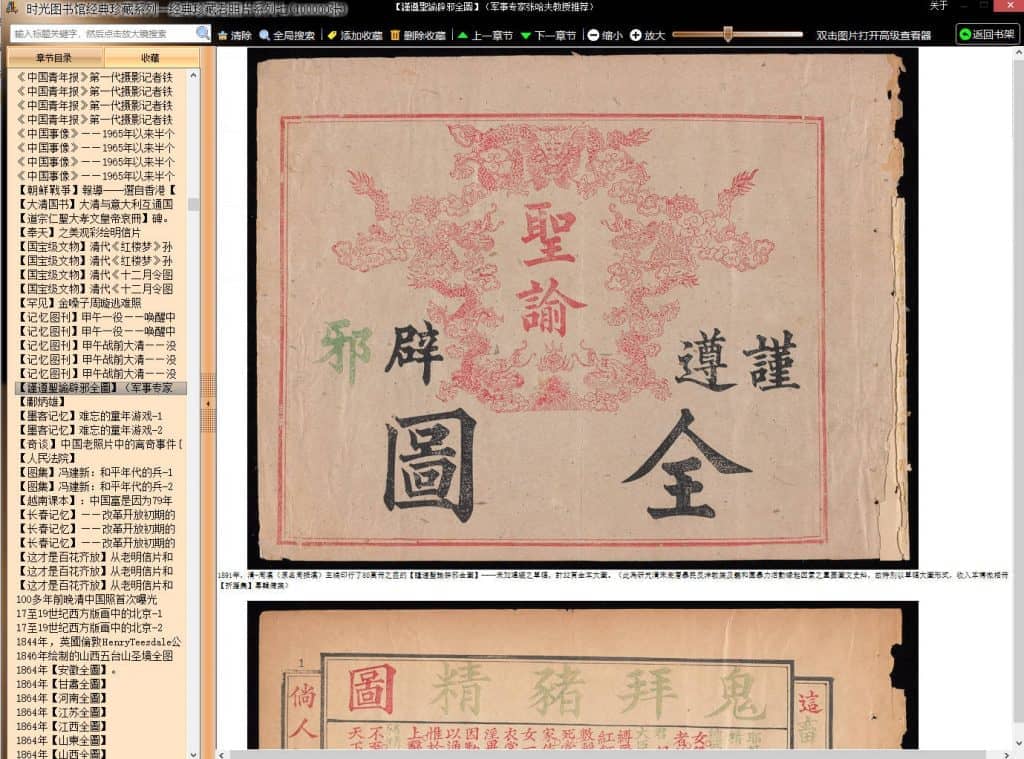 时光图书馆经典珍藏系列—经典珍藏老照片系列七(100000张)
【謹遵聖諭辟邪全圖】（军事专家张哈夫教授推荐）
关于
输入标题关键字，然后点击放大镜搜索
清除
全局搜索
添加收藏
删除收藏
上一章节
下一章节
缩小
放大
双击图片打开高级查看器
返回书架
章节目录
收藏
《中国青年报》第一代摄影记者铁
《中国青年报》第一代摄影记者铁
《中国青年报》第一代摄影记者铁
《中国青年报》第一代摄影记者铁
《中国事像》——1965年以来半个
《中国事像》——1965年以来半个
《中国事像》——1965年以来半个
《中国事像》——1965年以来半个
【朝鲜戰爭】報導——選自香港【
【大清国书】大清与意大利互通国
【道宗仁聖大孝文皇帝哀冊】碑。
【奉天】之美观彩绘明信片
【国宝级文物】清代《红楼梦》孙
【国宝级文物】清代《红楼梦》孙
【国宝级文物】清代《十二月令图
【国宝级文物】清代《十二月令图
【罕见】金嗓子周璇逃难照
【记忆图刊】甲午一役——唤醒中
【记忆图刊】甲午一役——唤醒中
【记忆图刊】甲午战前大清——没
【记忆图刊】甲午战前大清——没
【记忆图刊】甲午战前大清——没
【謹遵聖諭辟邪全圖】（军事专家
【鄺炳雄】
【墨客记忆】难忘的童年游戏-1
【墨客记忆】难忘的童年游戏-2
【奇谈】中国老照片中的离奇事件[
【人民法院】
【图集】冯建新：和平年代的兵-1
【图集】冯建新：和平年代的兵-2
【越南课本】：中国富是因为79年
【长春记忆】——改革开放初期的
【长春记忆】——改革开放初期的
【长春记忆】——改革开放初期的
【这才是百花齐放】从老明信片和
【这才是百花齐放】从老明信片和
【这才是百花齐放】从老明信片和
100多年前晚清中国照首次曝光
17至19世纪西方版画中的北京-1
17至19世纪西方版画中的北京-2
1844年，英國倫敦HenryTeesdale公
1846年绘制的山西五台山圣境全图
1864年【安徽全圖】。
1864年【甘肅全圖】
1864年【河南全圖】
1864年【江苏全圖】
1864年【江西全圖】
1864年【山東全圖】
1864年【山西全圖】
聖諭
謹遵
辟邪
全圖
1
鬼拜豬精圖
這
倘人